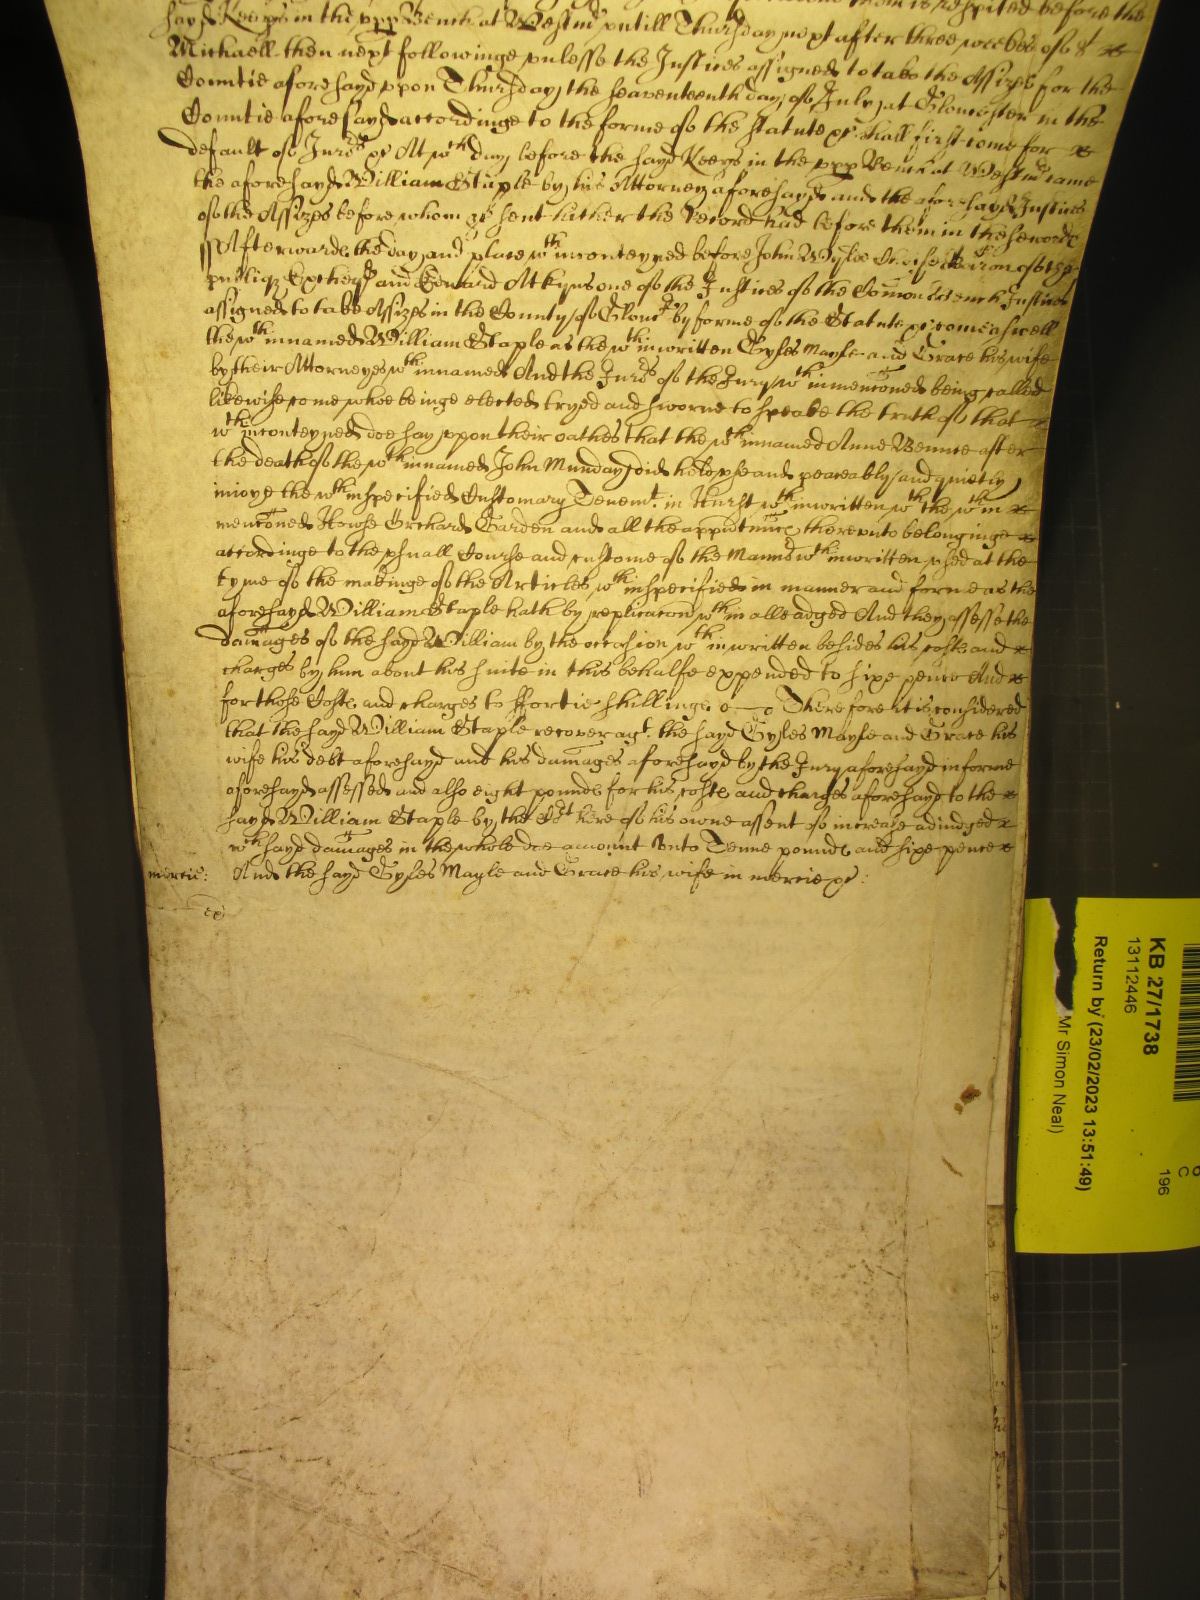 them is respited before the
sayd Keeps in the upp Bench at Westmr untill Thursday next after three weekes of St
Michaell then next followinge unlesse the Justices assigned to take the Assizes for the
Countie aforesayd uppon Thursday the seaventeenth day of July at Gloucester in the
Countie aforesayd accordinge to the forme of the statute &c shall first come for
default of Jurrs &c At wch day before the sayd Keeps in the upp Bench at Westmr came
the aforesayd William Staple by his Attorney aforesayd and the aforesayd Justices
of the Assizes before whom &c sent hither the Record had before them in these words
ss Afterwards the day and place wthin conteyned before John Wylde Cheife Baron of the
publiq Exchequr and Edward Atkyns one of the Justices of the Comon Bench Justices
assigned to take Assizes in the County of Glouc by forme of the Statute &c come aswell
the wthin named William Staple as the wthin written Gyles Mayle and Grace his wife
by their Attorneyes wthin named And the Jurrs of the Jury wthin mencioned being called
likewise come whoe beinge elected tryed and sworne to speake the truth of that
wthin conteyned doe say uppon their oathes that the wthin named Anne Bennce after
the death of the wthin named John Munday did hold use and peaceably and quietly
injoye the wthin specified Customary Tenemt. in Hurst wthin written wth the wthin
mencioned Howse Orchard Garden and all the apputnncs thereunto belonginge
accordinge to the usuall Course and custome of the Mannor wthin written used at the
tyme of the makinge of the Articles wthin specified in manner and forme as the
aforesayd William Staple hath by replicacon wthin alleadged And they assesse the
damages of the sayd William by the occasion wthin written besides his costs and
charges by him about his suite in this behalfe expended to sixe pence And
for those Costs and charges to ffortie shillings Therefore it is considered
that the sayd William Staple recover agt. the sayd Gyles Mayle and Grace his
wife his debt aforesayd and his damages aforesayd by the Jury aforesayd in forme
aforesayd assessed and also eight pounds for his costs and charges aforesayd to the
sayd William Staple by the Crt here of his owne assent of increase adiudged
wch sayd damages in the whole doe amount unto Tenne pounds and sixe pence
mercie: And the sayd Gyles Mayle and Grace his wife in mercie &c:
ex
KB 27/1738
13112446
Return by (23/02/2023 13:51:49)
Mr Simon Neal)
C
196